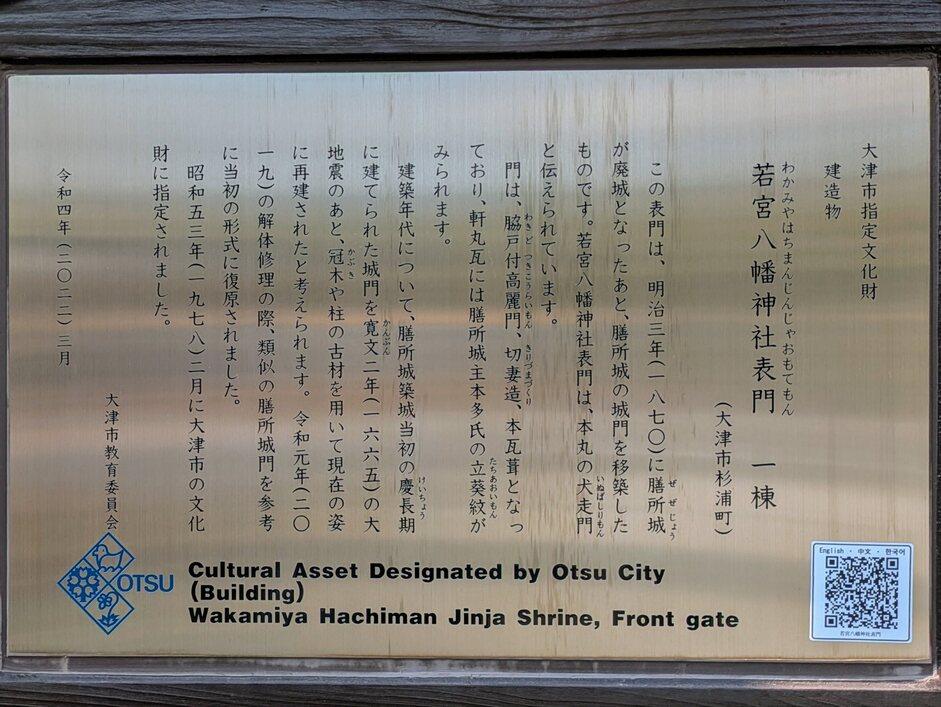 大津市指定文化財
建造物
わかみやはちまんじんじゃおもてもん
若宮八幡神社表門　一棟
（大津市杉浦町）
この表門は、明治三年（一八七〇）に膳所城
ぜぜじょう
が廃城となったあと、膳所城の城門を移築した
ものです。若宮八幡神社表門は、本丸の犬走門
いぬばしりもん
と伝えられています。
門は、脇戸付高麗門、切妻造、本瓦葺となっ
わきどつきこうらいもん　きりづまづくり
ており、軒丸瓦には膳所城主本多氏の立葵紋が
たちあおいもん
みられます。
建築年代について、膳所城築城当初の慶長期
けいちょう
に建てられた城門を寛文二年（一六六五）の大
かんぶん
地震のあと、冠木や柱の古材を用いて現在の姿
かぶき
に再建されたと考えられます。令和元年（二〇
一九）の解体修理の際、類似の膳所城門を参考
に当初の形式に復原されました。
昭和五三年（一九七八）三月に大津市の文化
財に指定されました。
令和四年（二〇二二）三月
大津市教育委員会
OTSU
Cultural Asset Designated by Otsu City
(Building)
Wakamiya Hachiman Jinja Shrine, Front gate
English ・ 中文 ・ 한국어
若宮八幡神社表門